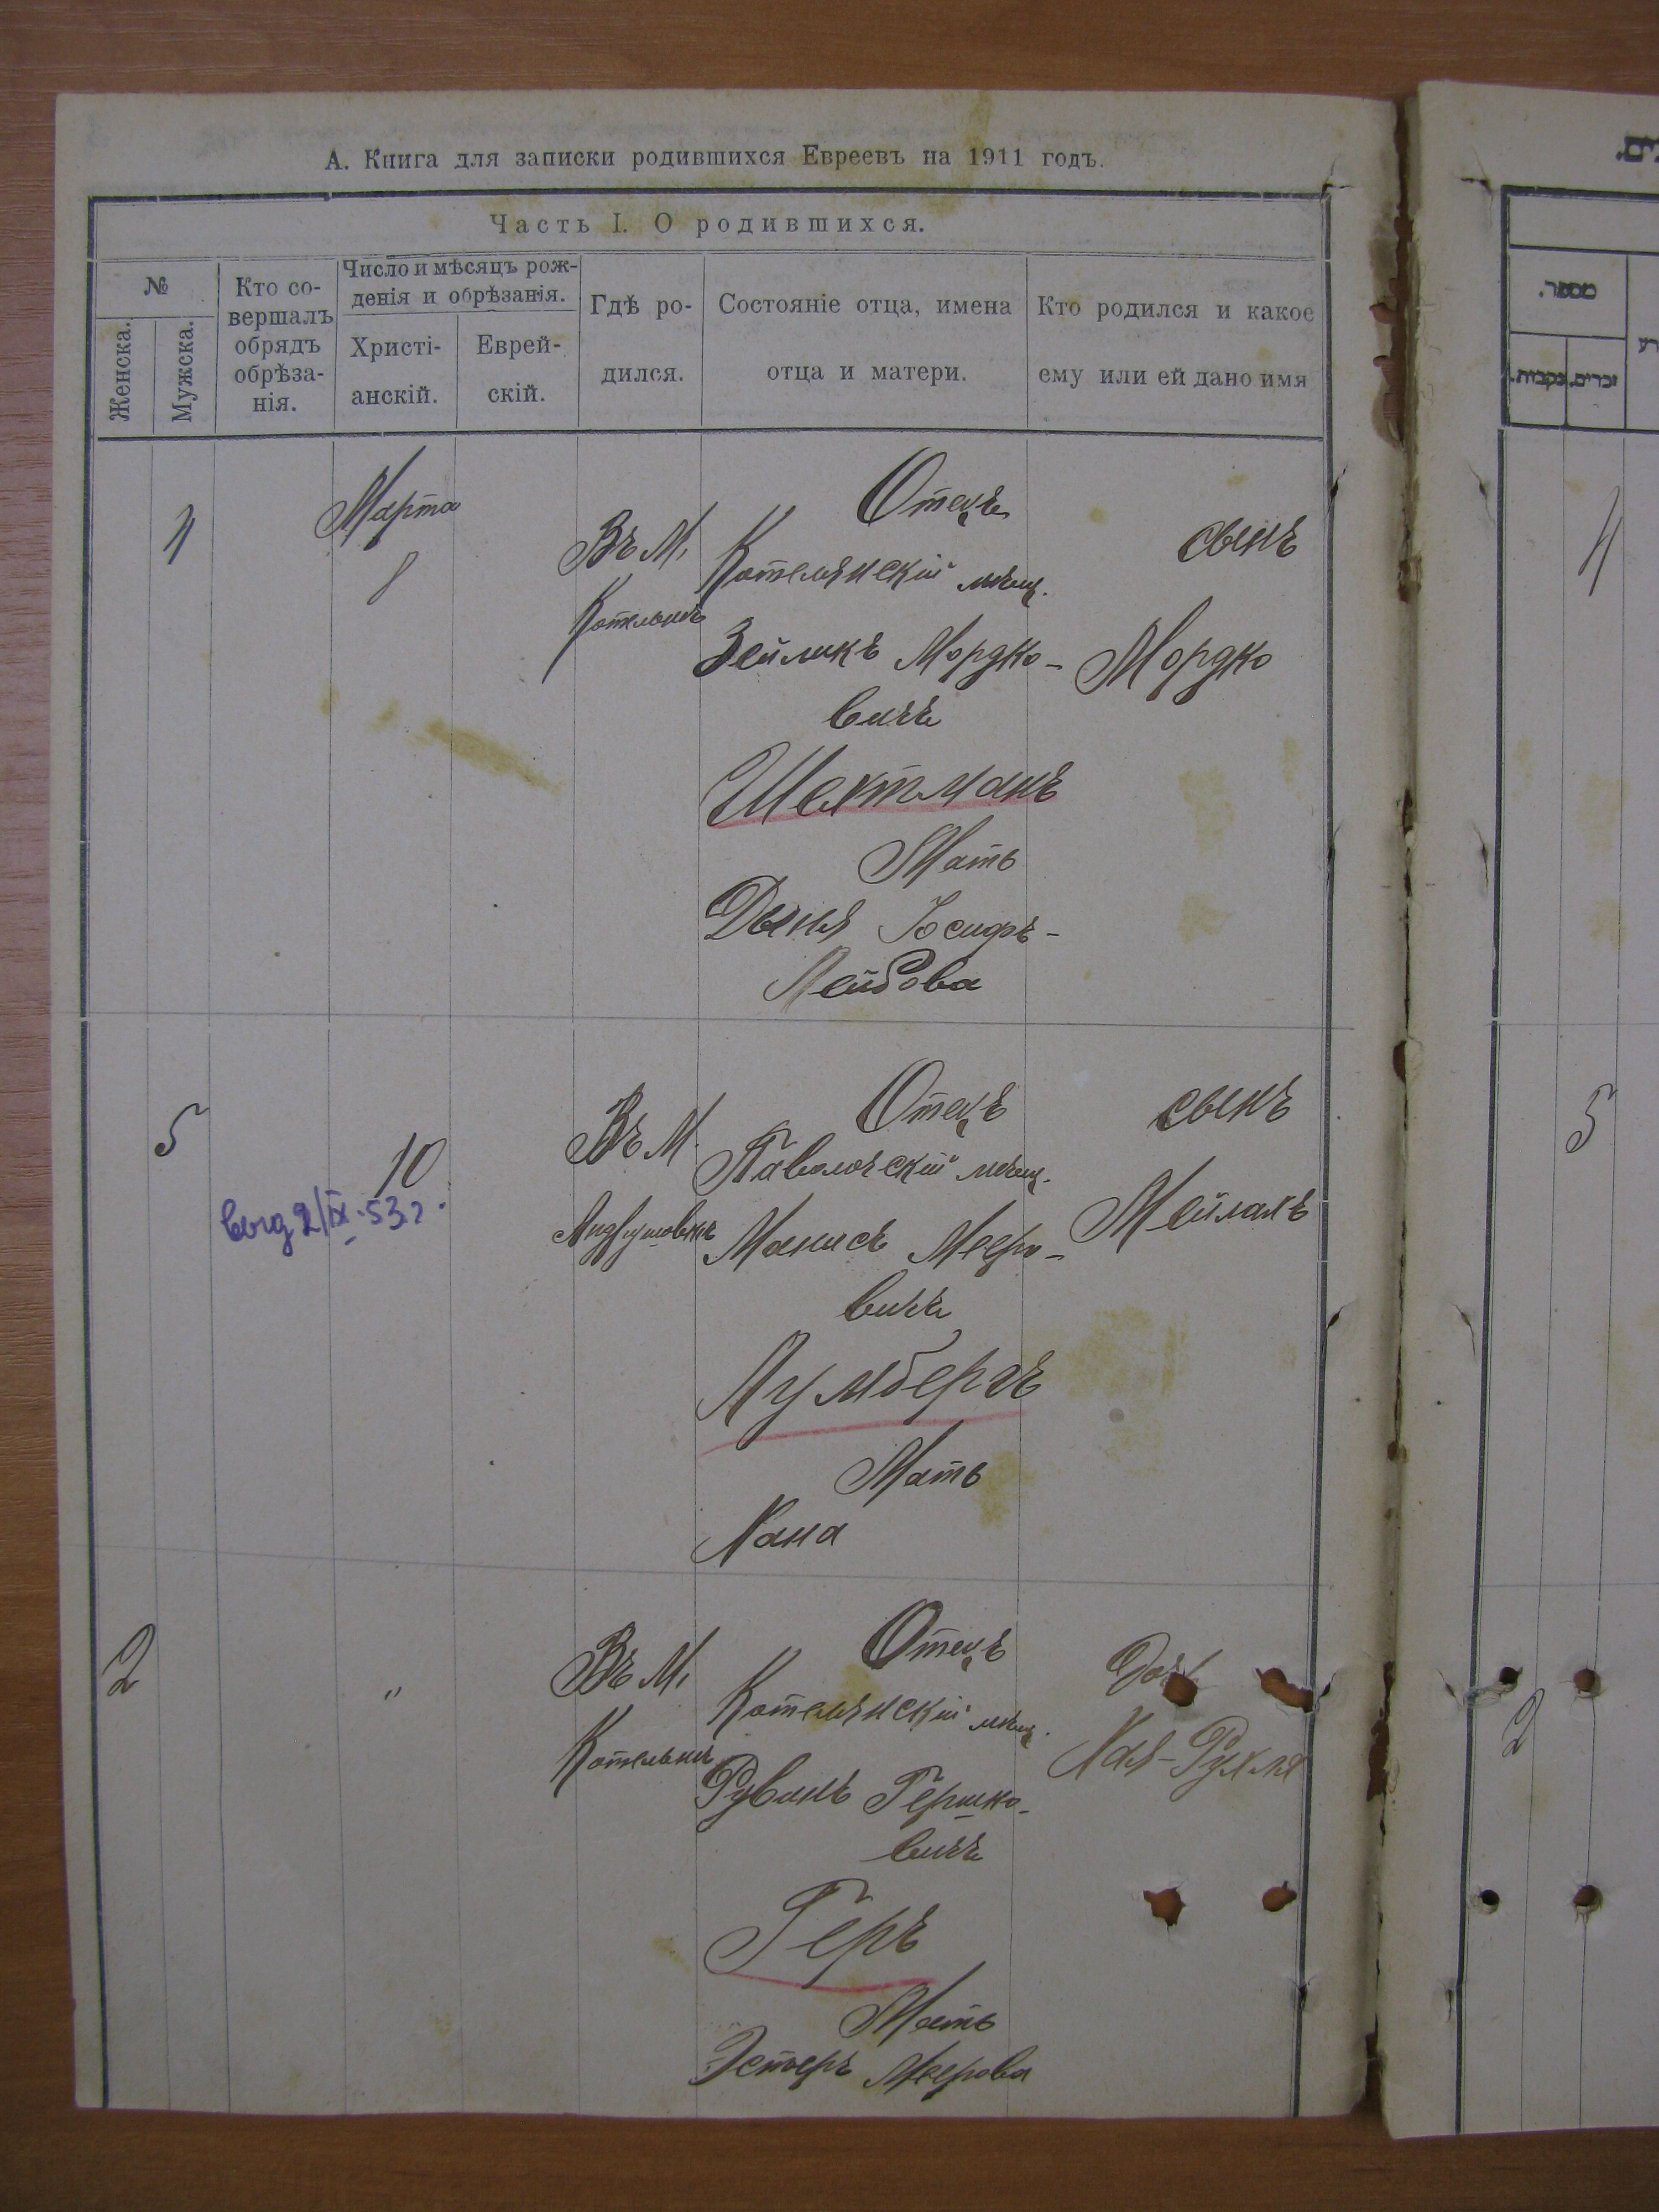 А. Книга для записки родившихся Евреевъ на 1911 годъ.
Часть I. О родившихся.
№
Женска.
Мужска.
Кто со-
вершалъ
обрядъ
обрѣза-
нія.
Число и мѣсяцъ рож-
денія и обрѣзанія.
Христі-
анскій.
Еврей-
скій.
Гдѣ ро-
дился.
Состояніе отца, имена
отца и матери.
Кто родился и какое
ему или ей дано имя
4
Марта
8
Въ М.
Котельнѣ
Отецъ
Котельнскій мѣщ.
Зейликъ Мордко-
вичъ
Шехтманъ
Мать
Двейя Іосифъ-
Лейбова
сынъ
Мордко
5
10
выд 2/IX.53г.
Въ М.
Андрушовкѣ
Отецъ
Паволочскій мѣщ.
Манисъ Мееро-
вичъ
Лумбергъ
Мать
Хана
сынъ
Мейлахъ
2
"
Въ М.
Котельнѣ
Отецъ
Котельнскій мѣщ.
Рувинъ Гершко-
вичъ
Геръ
Мать
Эстеръ Меерова
Дочь
Хая-Рухля
מספר.
זכרים.
נקבות.
4
5
2